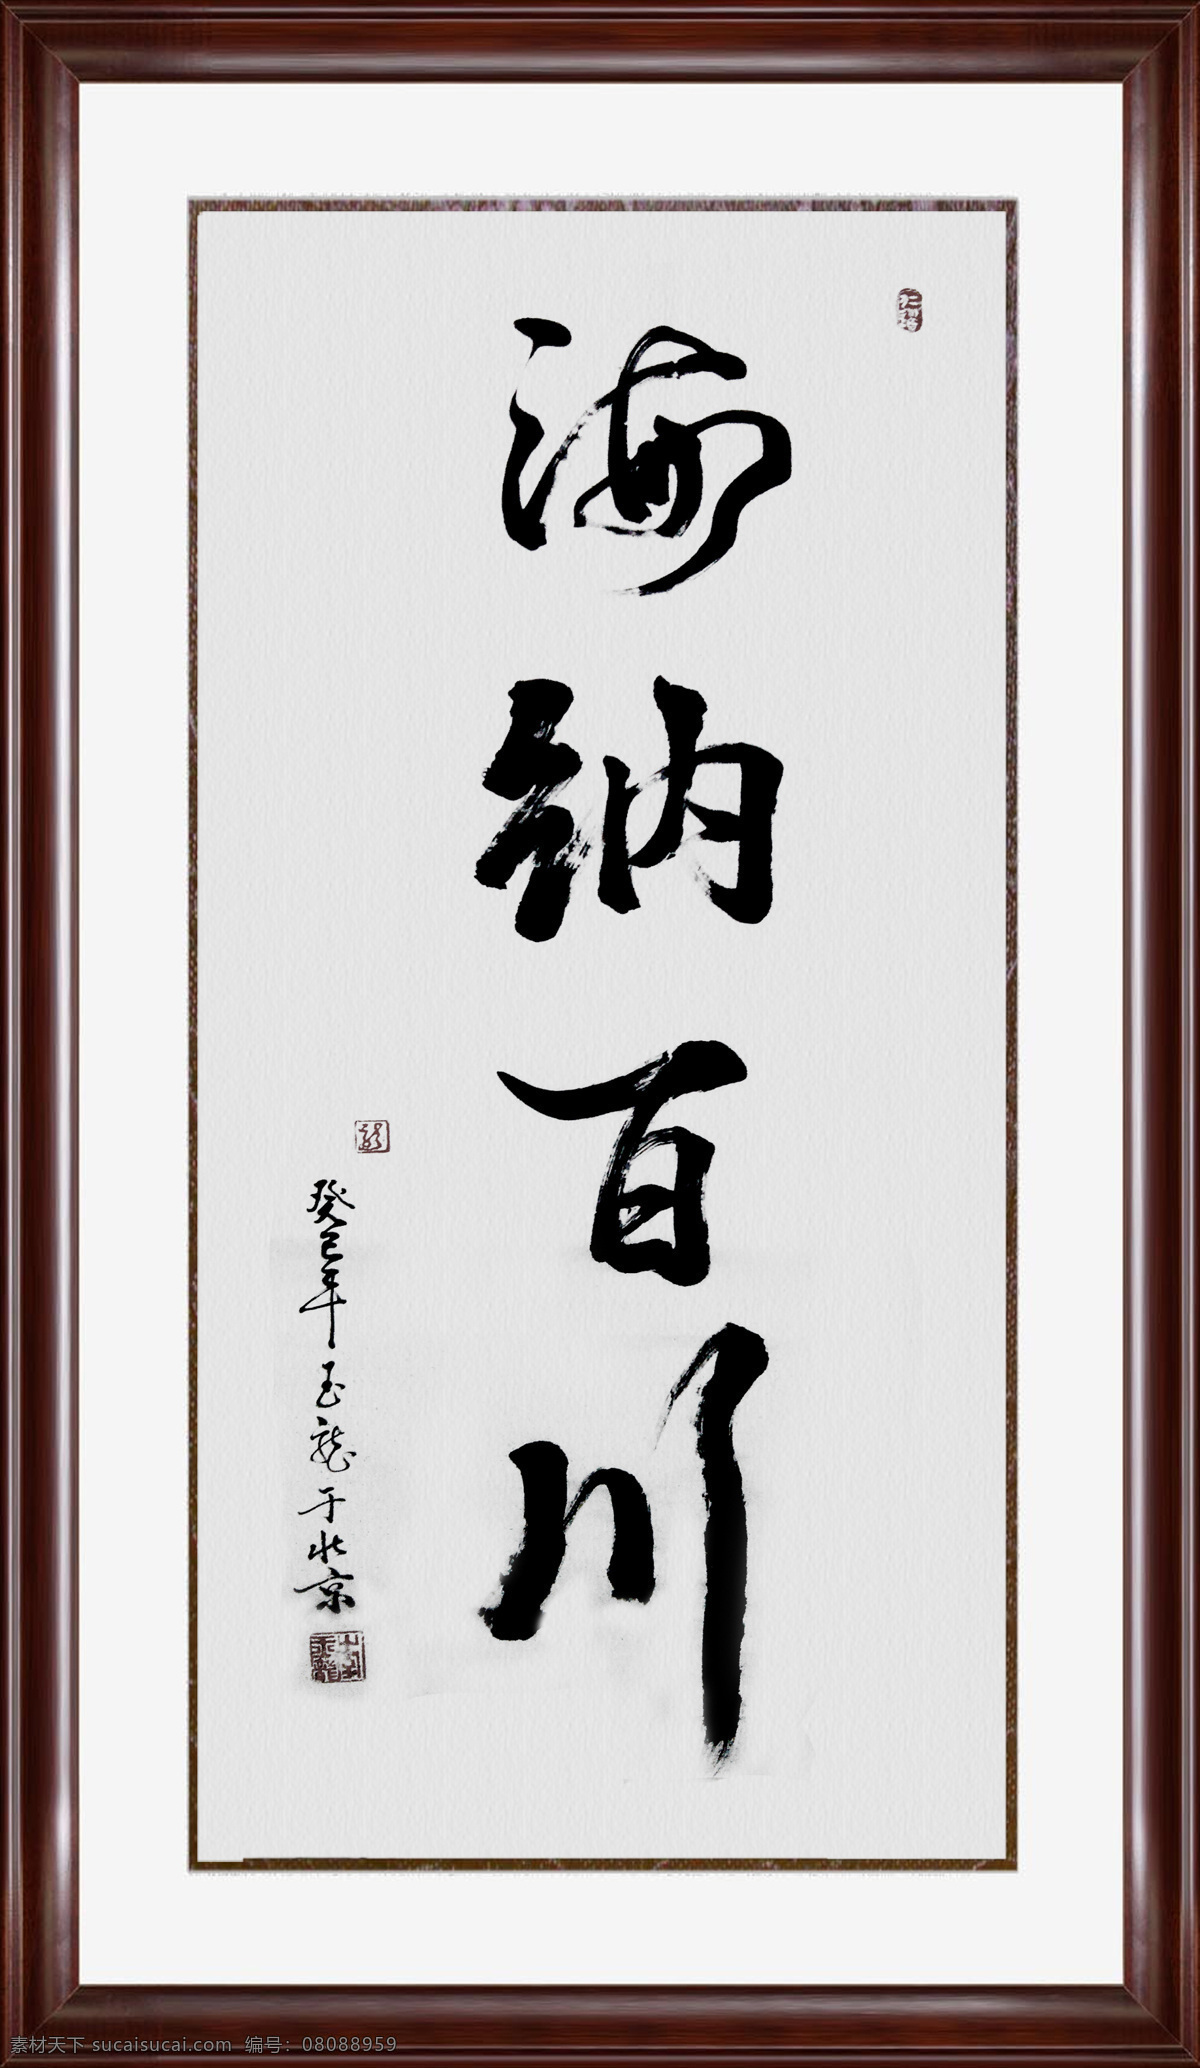 海纳百川
癸巳年玉龙于北京
素材天下 sucaisucai.com 编号：08088959